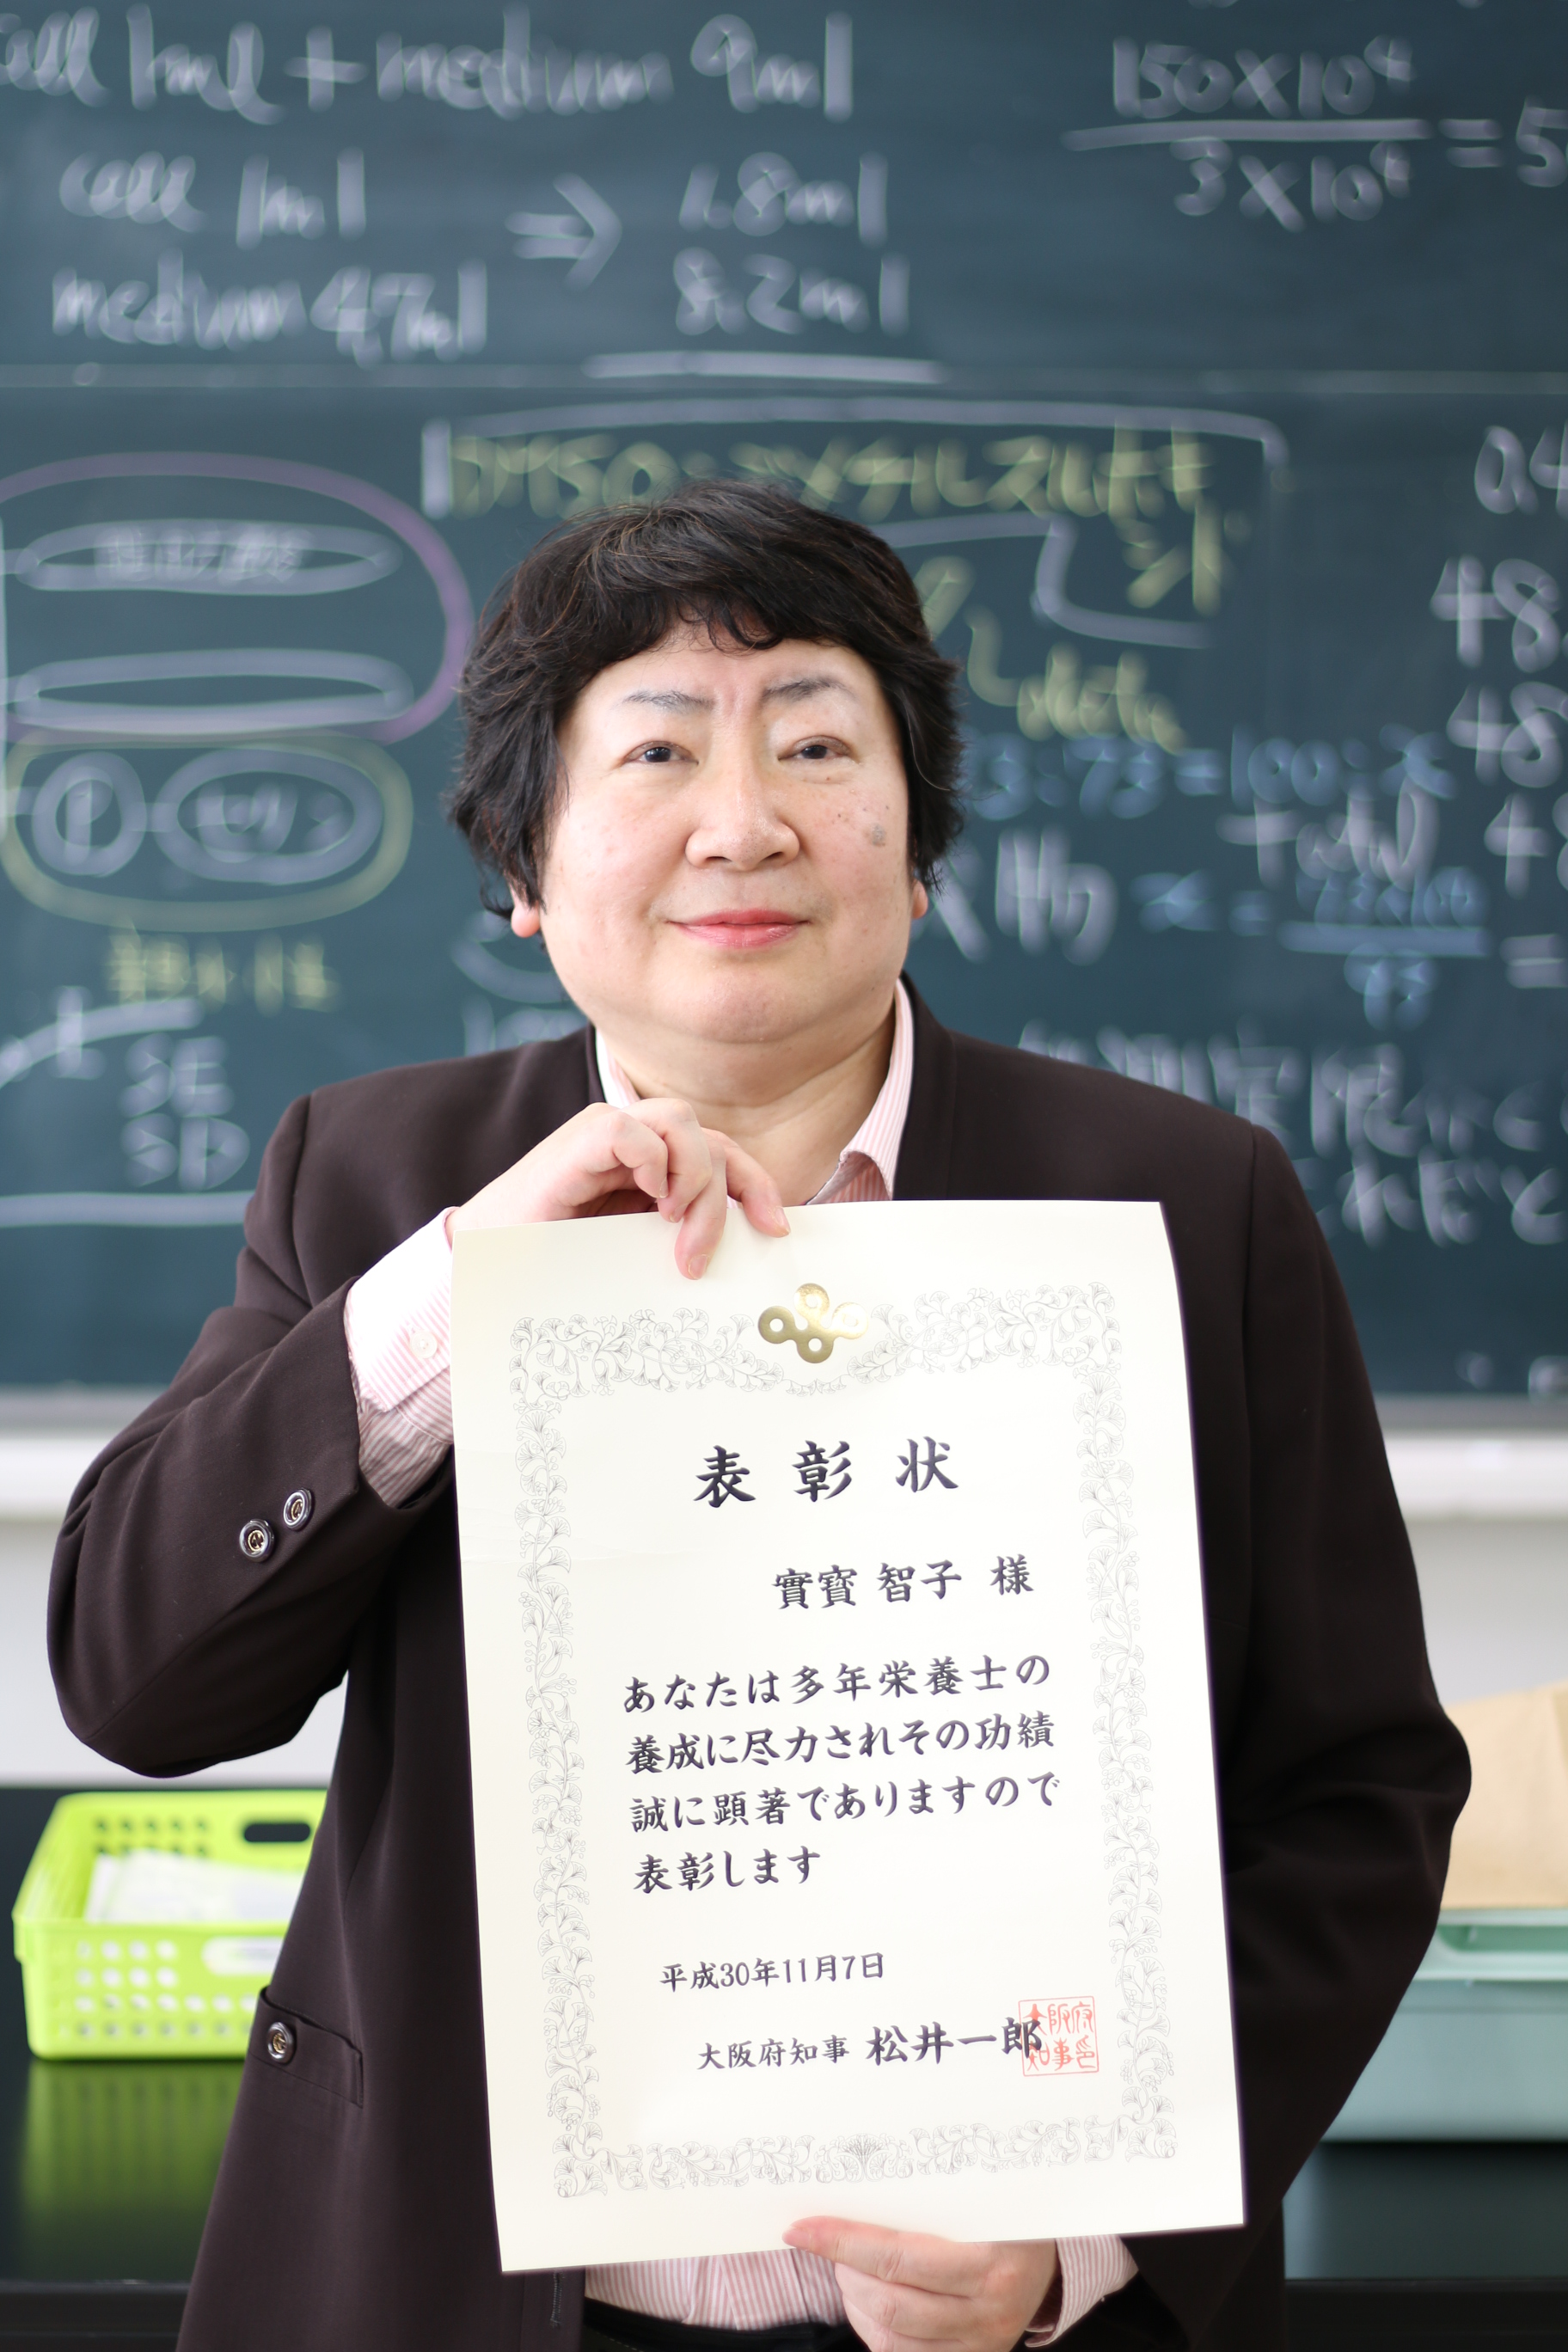 cell 1ml + medium 9ml
150×10⁴
3×10⁶
= 5
cell 1ml
⇒ 1.8ml
medium 4.7ml
8.2ml
DMSO:ジメチルスルホキ
シド
0.4
48
48
3:73=100:x
total
物
x =
73×100
73
=
SE
SD
表彰状
實寳 智子 様
あなたは多年栄養士の
養成に尽力されその功績
誠に顕著でありますので
表彰します
平成30年11月7日
大阪府知事 松井一郎
大阪府
知事印